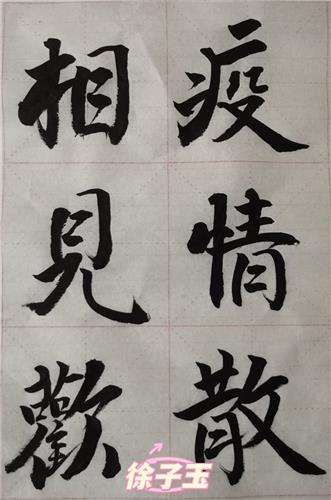 疫情散
相見歡
徐子玉